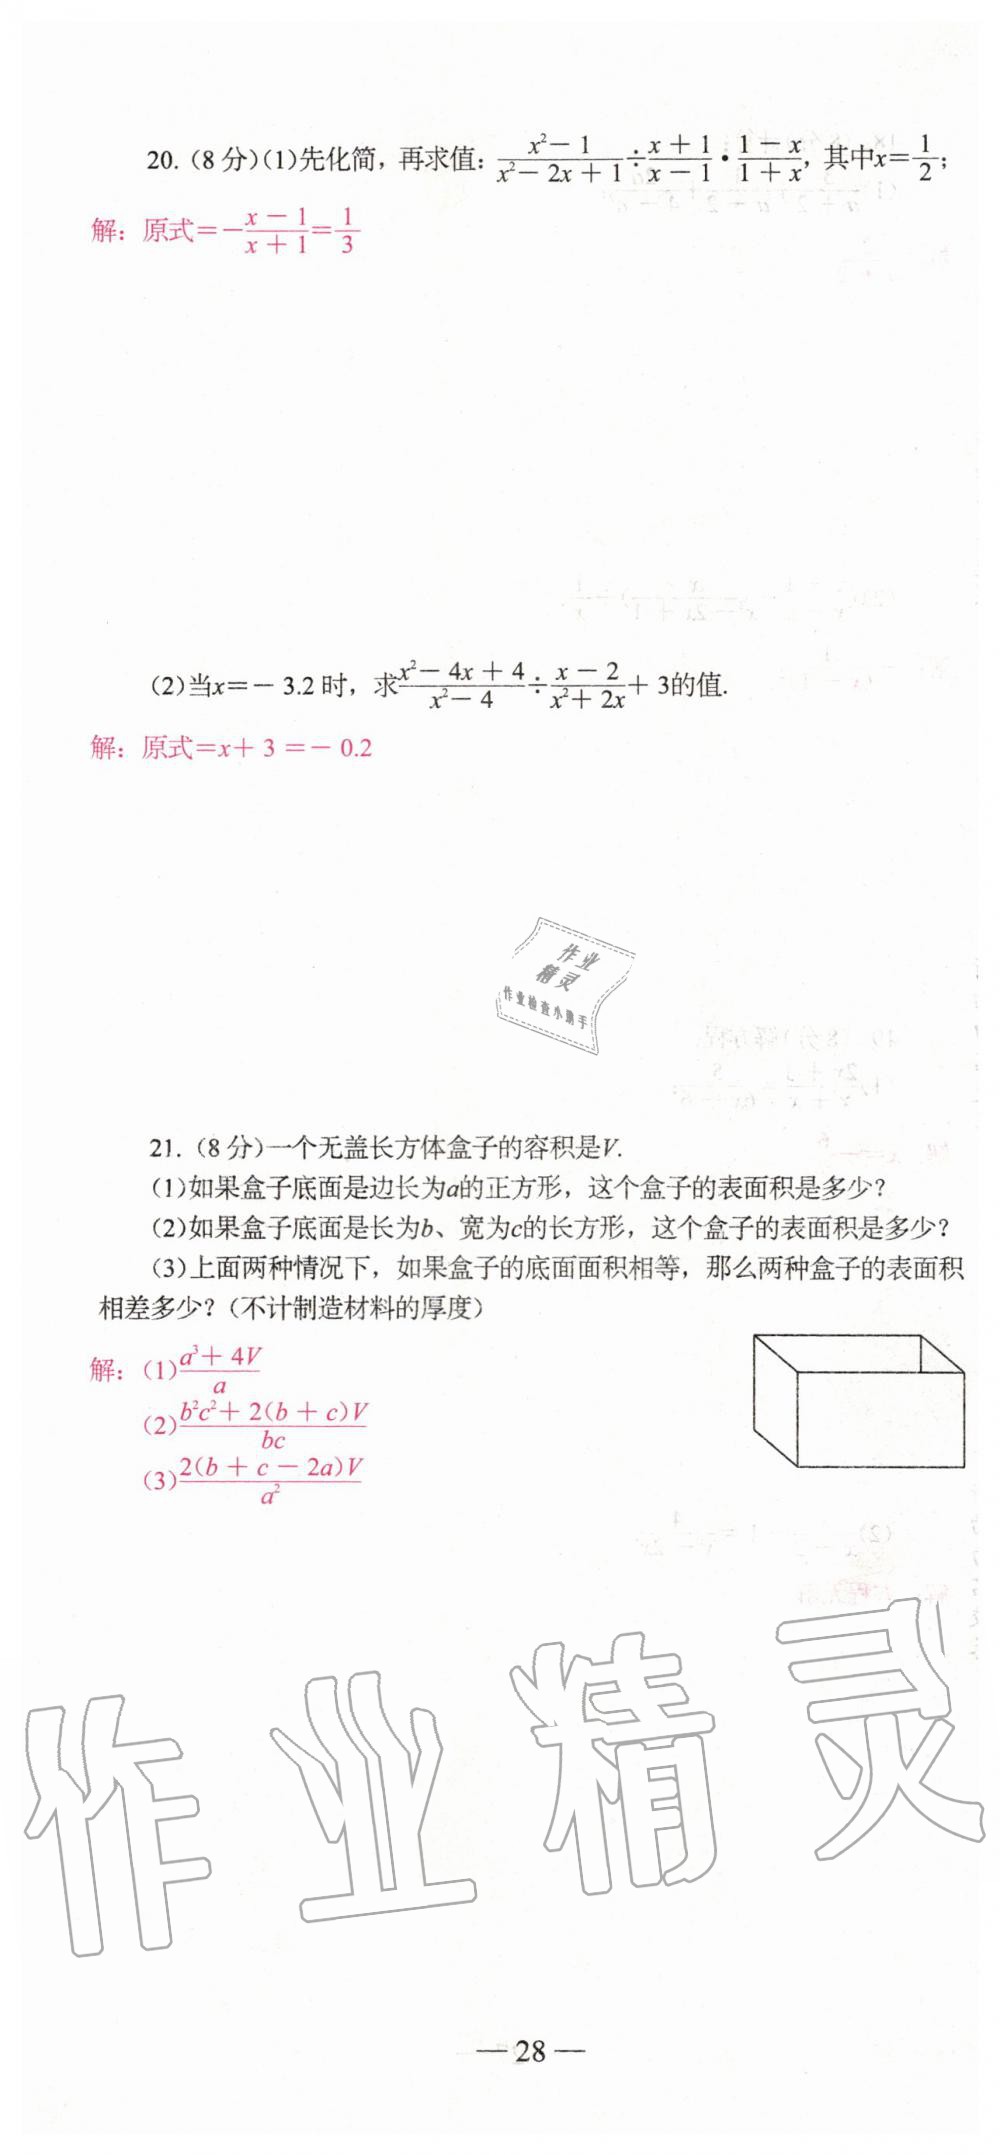 20.（8分）(1)先化简，再求值：(x²－1)/(x²－2x＋1)÷(x＋1)/(x－1)·(1－x)/(1＋x)，其中x＝1/2；
解：原式＝－(x－1)/(x＋1)＝1/3
(2)当x＝－3.2时，求(x²－4x＋4)/(x²－4)÷(x－2)/(x²＋2x)＋3的值.
解：原式＝x＋3＝－0.2
作业
精灵
作业检查小助手
21.（8分）一个无盖长方体盒子的容积是V.
(1)如果盒子底面是边长为a的正方形，这个盒子的表面积是多少？
(2)如果盒子底面是长为b、宽为c的长方形，这个盒子的表面积是多少？
(3)上面两种情况下，如果盒子的底面面积相等，那么两种盒子的表面积
相差多少？（不计制造材料的厚度）
解：(1)(a³＋4V)/a
(2)(b²c²＋2(b＋c)V)/bc
(3)2(b＋c－2a)V/a²
作业精灵
—28—